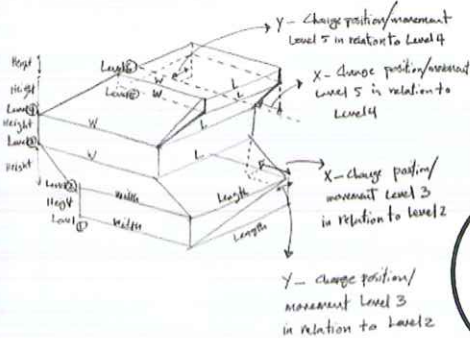 Y - Change position/movement
Level 5 in relation to Level 4
X - Change position/movement
Level 5 in relation to
Level 4
X - Change position/
movement Level 3
in relation to Level 2
Y - Change position/
movement Level 3
in relation to Level 2
Height
Height
Level ④
Height
Level ③
Height
Level ②
Height
Level ①
Level ⑥
Level ⑤
W
W
L
L
W
L
W
L
width
Length
width
Length